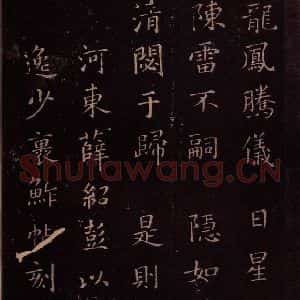 龍鳳騰儀 日星
陳雷不嗣 隱如
清閟于歸 是則
河東薛紹彭以
逸少裹鮓帖刻
Shufawang.CN